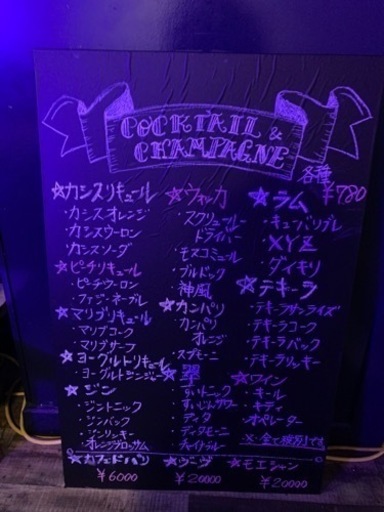 COCKTAIL &
CHAMPAGNE
各種
¥780
☆カシスリキュール
・カシスオレンジ
・カシスウーロン
・カシスソーダ
☆ピーチリキュール
・ピーチウーロン
・ファジーネーブル
☆マリブリキュール
・マリブコーク
・マリブサーフ
☆ヨーグルトリキュール
・ヨーグルトジンジャー
☆ジン
・ジントニック
・ジンバック
・オレンジブロッサム
☆カフェドパリ
¥6000
☆ウォッカ
・スクリュー
ドライバー
・モスコミュール
・ブルドッグ
・神風
☆カンパリ
・カンパリ
オレンジ
・スプモーニ
☆翠
・チャイナブルー
¥20000
☆ラム
・キューバリブレ
・XYZ
・ダイキリ
☆テキーラ
・テキーラサンライズ
・テキーラコーク
・テキーラバック
・テキーラリッキー
☆ワイン
・キール
・キティ
・オペレーター
☆モエシャン
¥20000